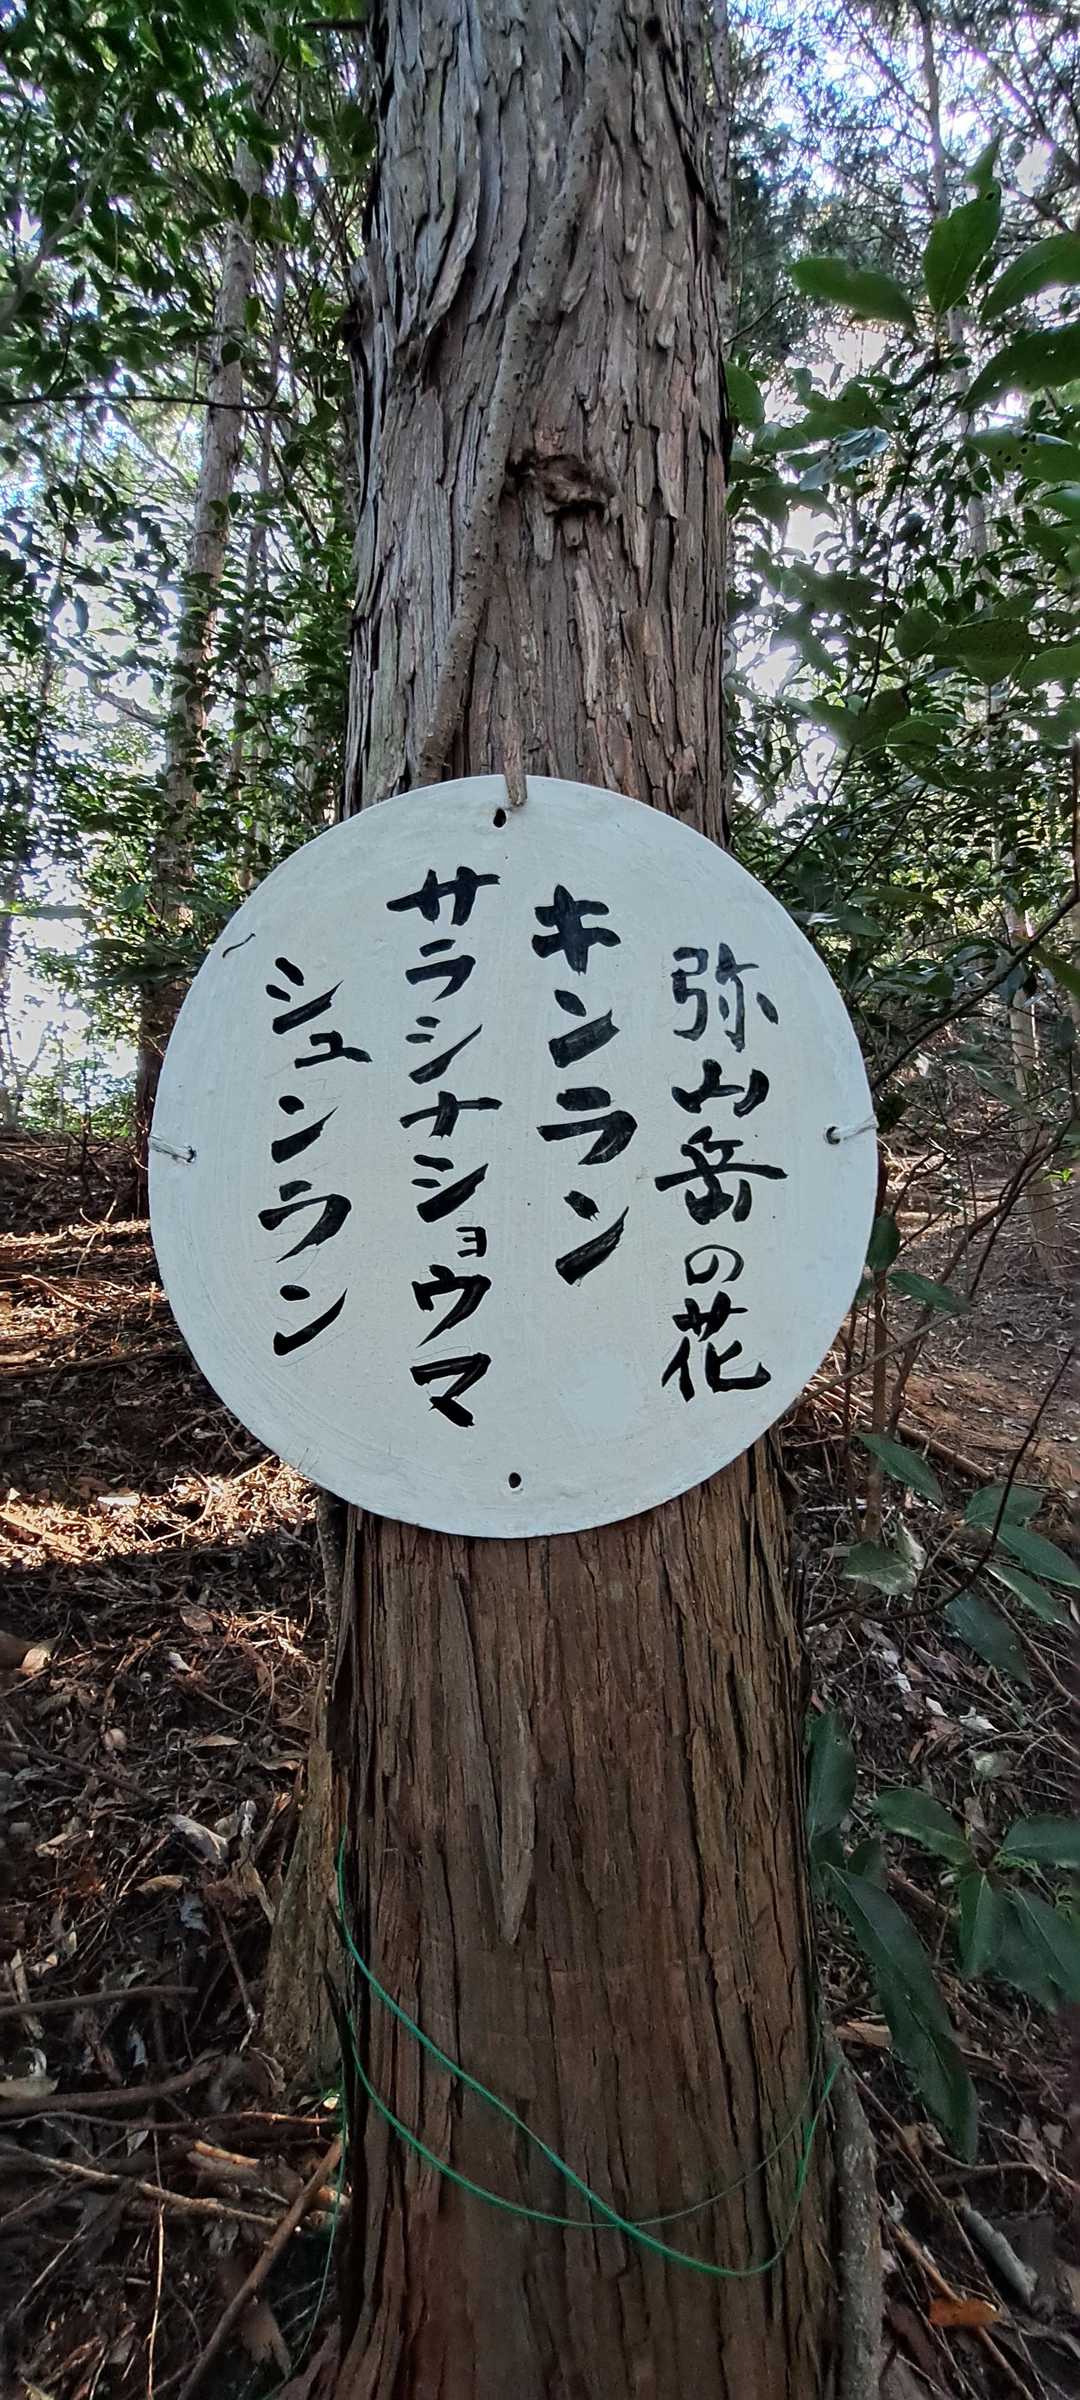 弥山岳の花
キンラン
サラシナショウマ
シュンラン